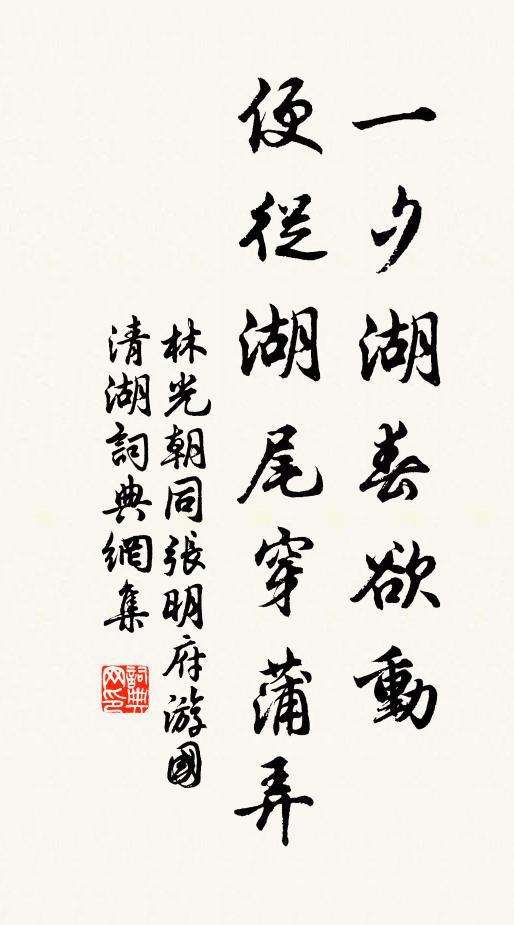 一夕湖春欲動
便從湖尾穿蒲弄
林光朝同張明府游國
清湖詞典網集
詞典網印